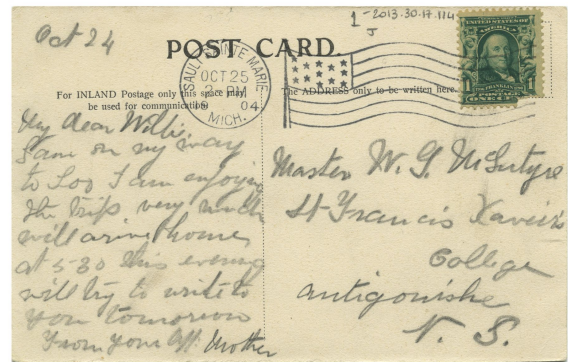 Oct 24
1 - 2013.30.17.114
J
POST CARD.
UNITED STATES OF AMERICA
SAULT SAINTE MARIE
OCT 25
2 PM
04
MICH.
For INLAND Postage only this space may
be used for communication
The ADDRESS only to be written here.
1
POSTAGE
ONE CT
1
My dear Willie.
on my way
to Soo I am enjoying
the trip very much
will arive home
at 5-30 this evening
will try to write to
you tomorrow
From your Aff. Mother
Master W. G. McIntyre
St Francis Xavier's
College
Antigonishe
N. S.